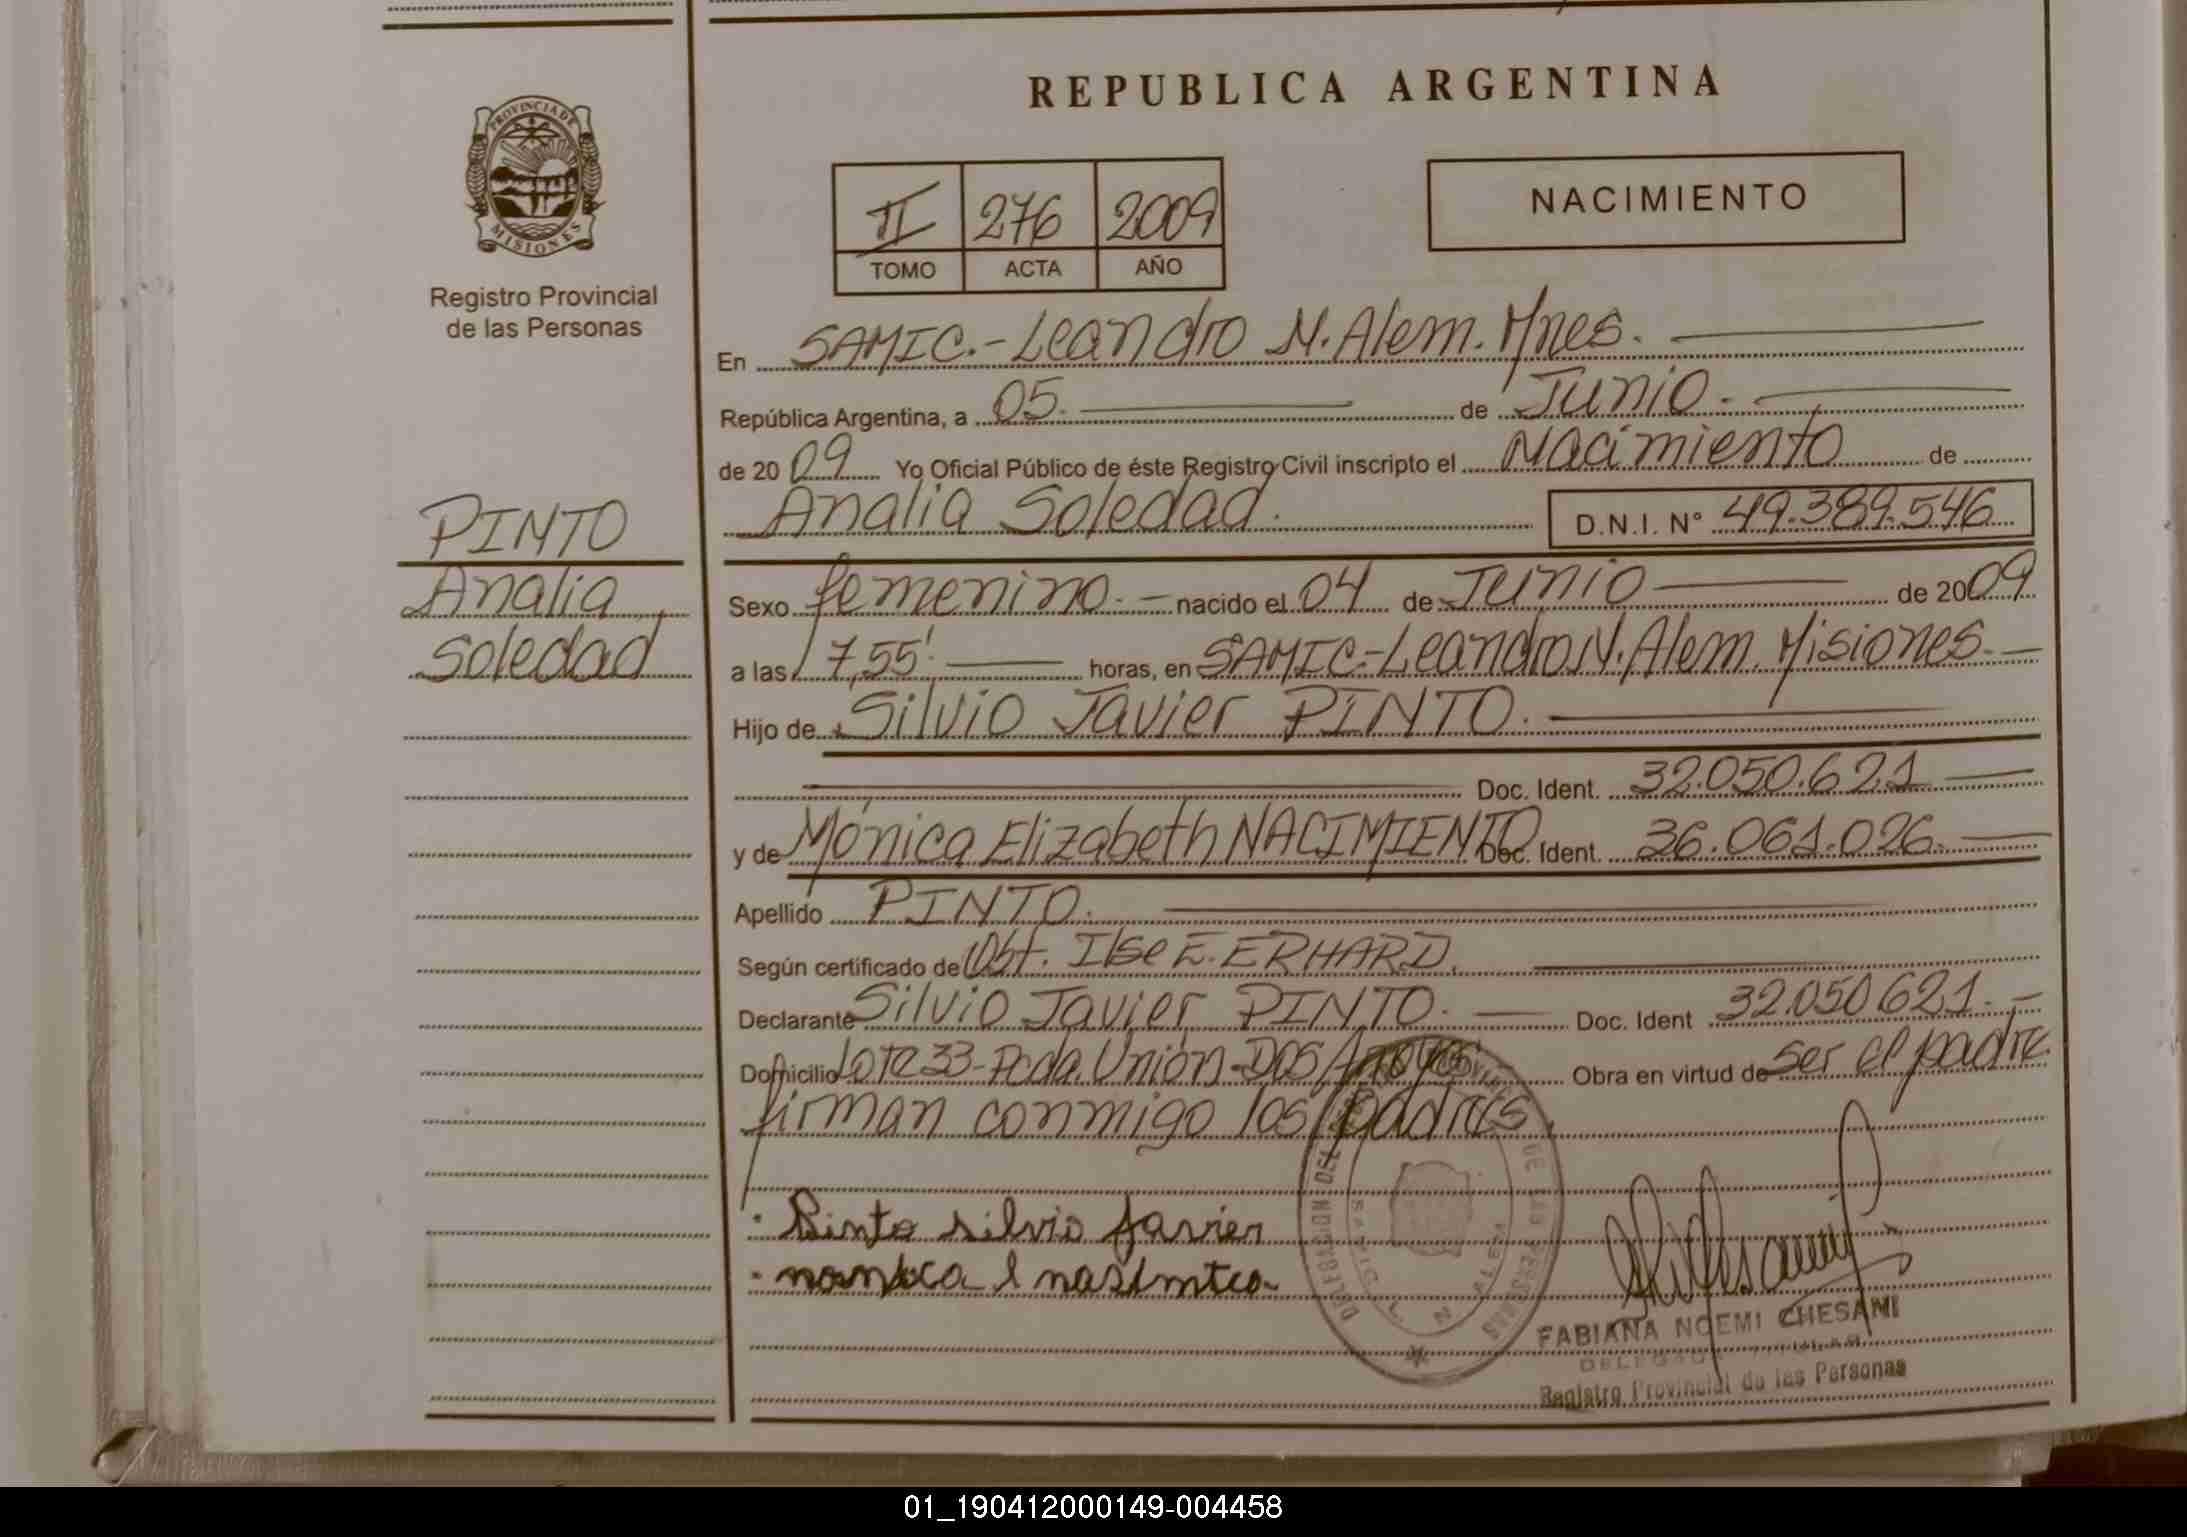 REPUBLICA ARGENTINA
PROVINCIA DE
MISIONES
Registro Provincial
de las Personas
II 276 2009
TOMO ACTA AÑO
NACIMIENTO
En SAMIC.- Leandro N. Alem. Mnes.
República Argentina, a 05. de Junio.
de 2009 Yo Oficial Público de éste Registro Civil inscripto el Nacimiento de
Analia Soledad. D.N.I. N° 49.389.546
PINTO
Analia
Soledad
Sexo femenino.- nacido el 04 de Junio de 2009
a las 7,55' horas, en SAMIC.-Leandro N. Alem. Misiones.-
Hijo de Silvio Javier PINTO.
Doc. Ident. 32.050.621
y de Mónica Elizabeth NACIMIENTO Doc. Ident. 36.061.026.
Apellido PINTO.
Según certificado de Obst. Ilse E. ERHARD.
Declarante Silvio Javier PINTO. Doc. Ident 32.050.621.-
Domicilio Lote 33-Pcda. Unión-Dos Arroyos Obra en virtud de ser el padre.
firman conmigo los padres
Pinto silvio Javier
DELEGACION DEL REGISTRO PROVINCIAL DE LAS PERSONAS
L. N. ALEM
FABIANA NOEMI CHESANI
DELEGADA TITULAR
Registro Provincial de las Personas
01_190412000149-004458